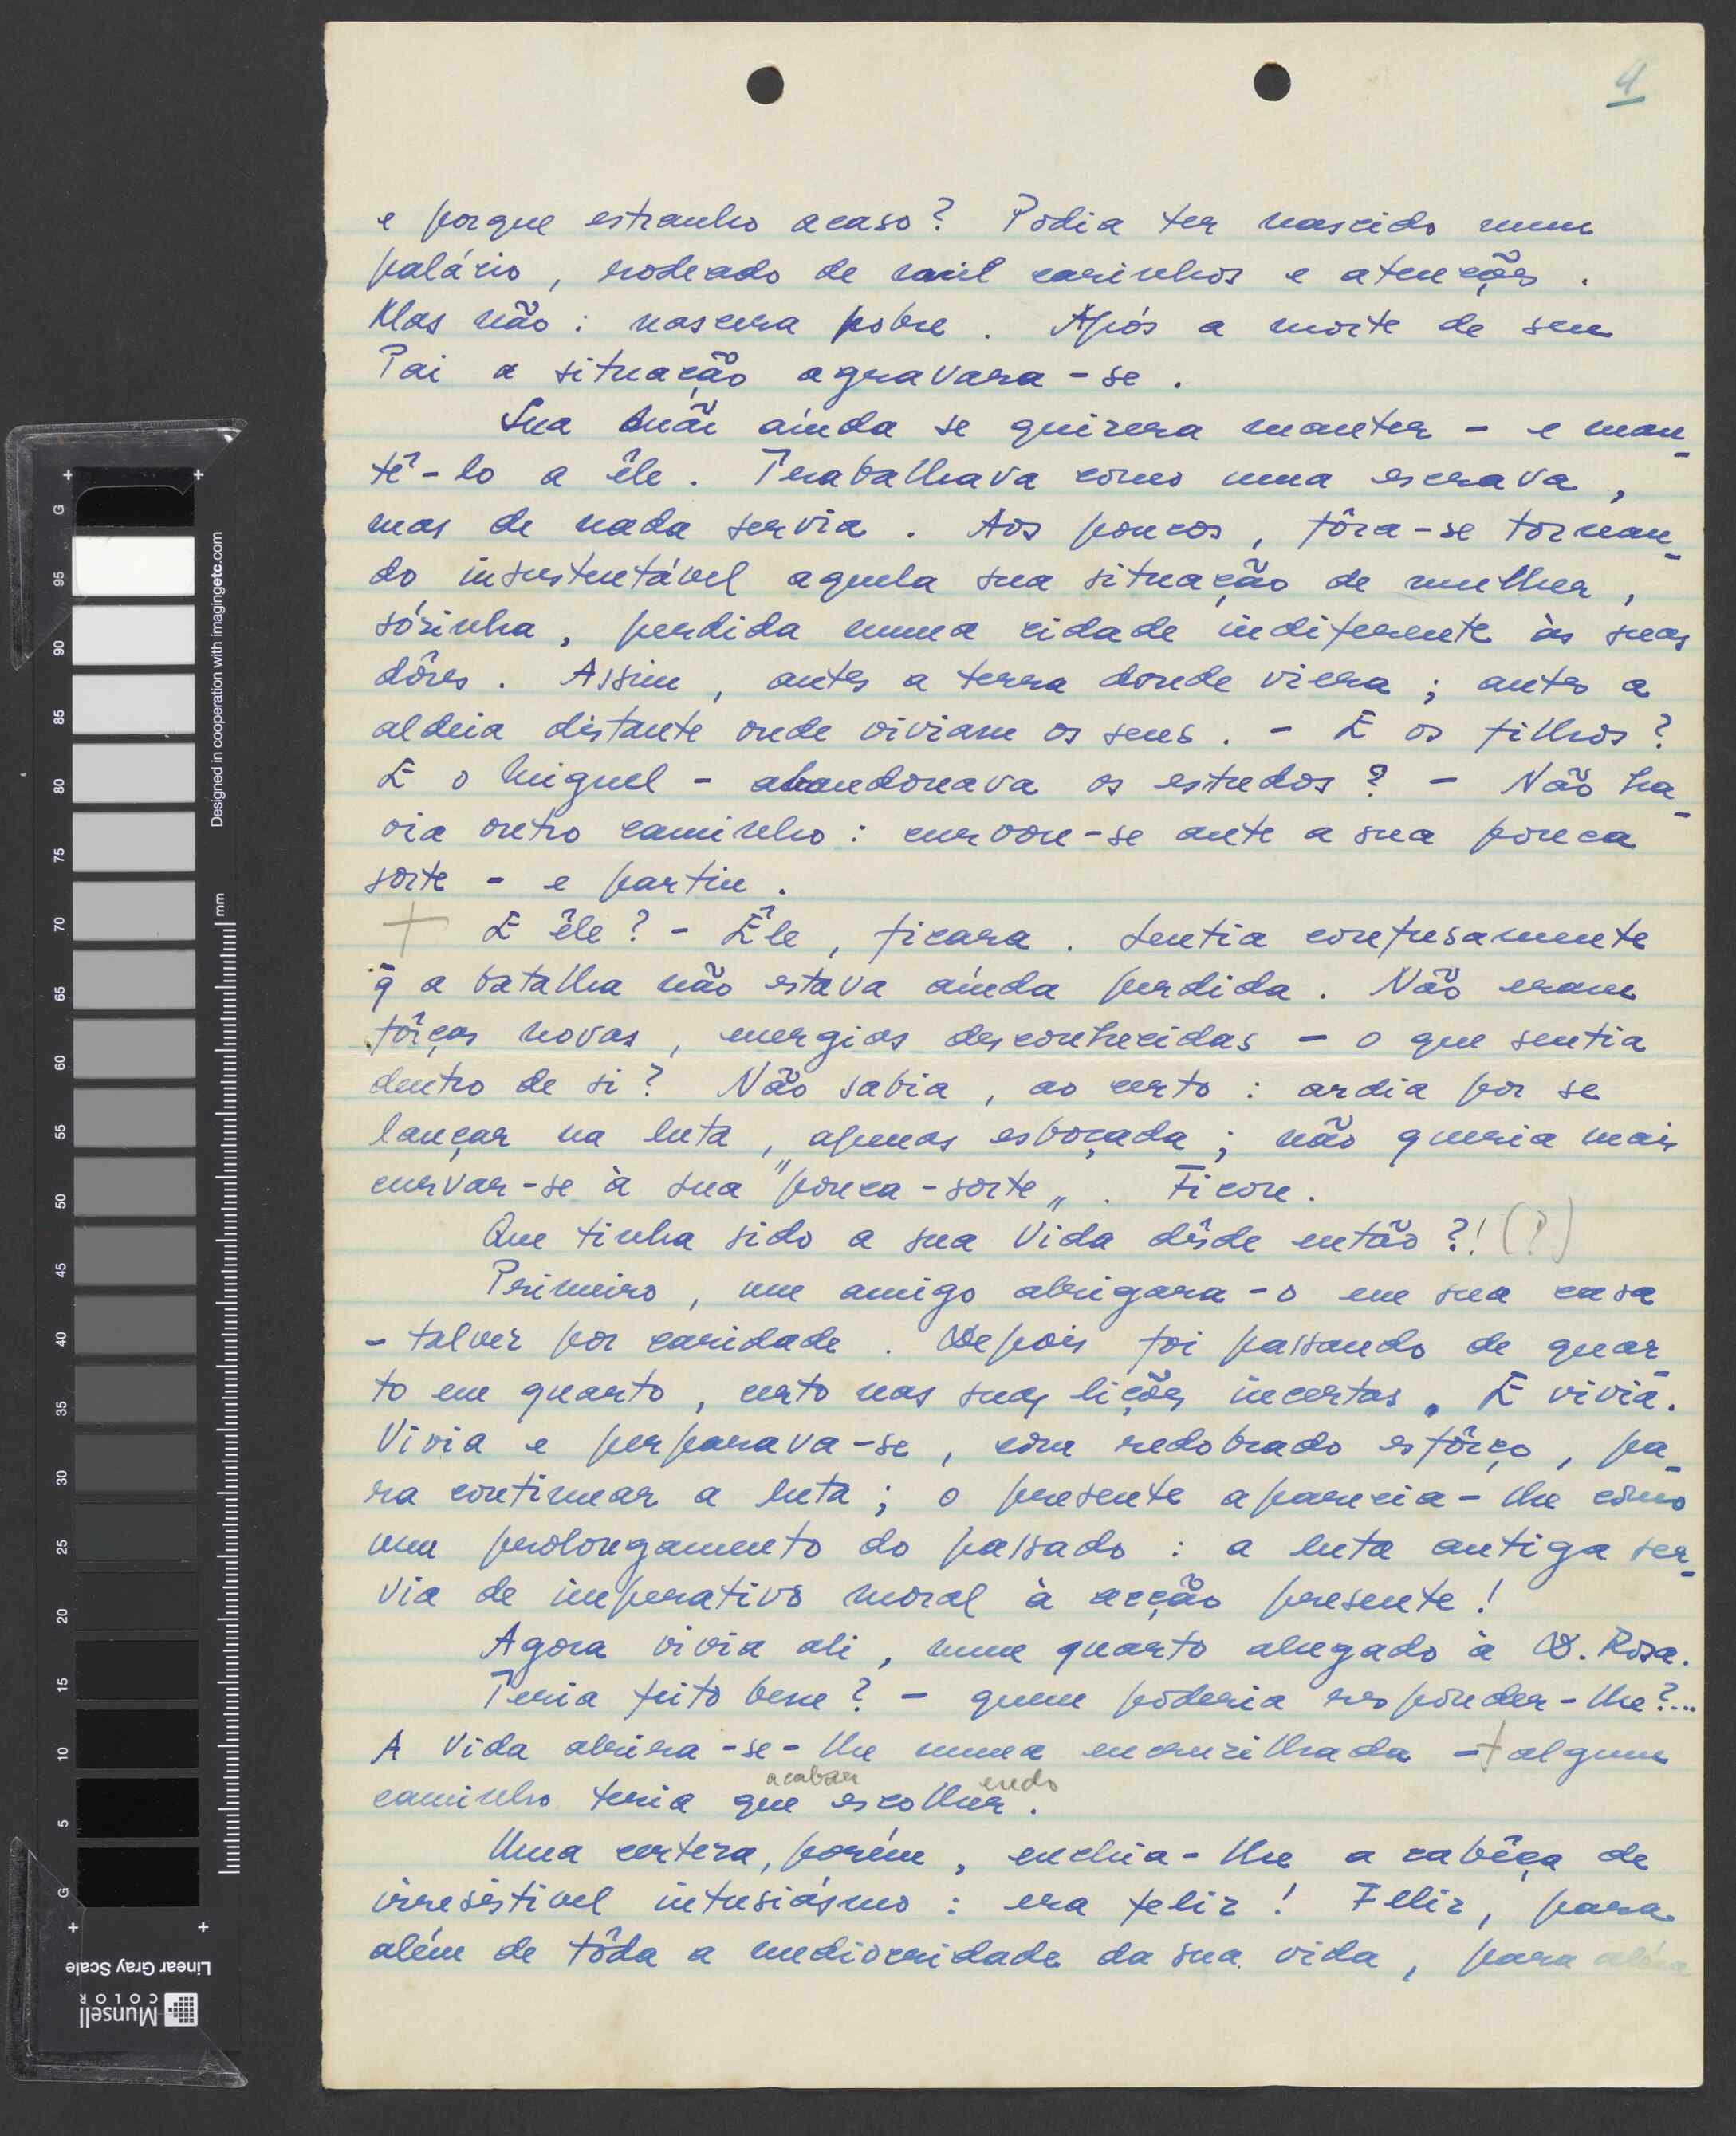 4
e porque estranho acaso? Podia ter nascido num
palácio, rodeado de mil carinhos e atenções.
Mas não: nascera pobre. Após a morte de seu
Pai a situação agravara-se.
Sua Mãi aínda se quizera manter - e man-
tê-lo a êle. Trabalhava como uma escrava,
mas de nada servia. Aos poucos, fôra-se tornan-
do insustentável aquela sua situação de mulher,
sósinha, perdida numa cidade indiferente às suas
dôres. Assim, antes a terra donde viera; antes a
aldeia distante onde viviam os seus. - E os filhos?
E o Miguel - abandonava os estudos? - Não ha-
via outro caminho: curvou-se ante a sua pouca
sorte - e partiu.
+ E êle? - Êle, ficara. Sentia confusamente
q̄ a batalha não estava aínda perdida. Não eram
fôrças novas, energias desconhecidas - o que sentia
dentro de si? Não sabia, ao certo: ardia por se
lançar na luta, apenas esboçada; não queria mais
curvar-se à sua "pouca-sorte„. Ficou.
Que tinha sido a sua Vida dêsde então?! (?)
Primeiro, um amigo abrigara-o em sua casa
- talvez por caridade. Depois foi passando de quar-
to em quarto, certo nas suas lições incertas. E vivia.
Vivia e perparava-se, com redobrado esfôrço, pa-
ra continuar a luta; o presente aparecia-lhe como
um prolongamento do passado: a luta antiga ser-
via de imperativo moral à acção presente!
Agora vivia ali, num quarto alugado à D. Rosa.
Teria feito bem? - quem poderia responder-lhe?...
A Vida abrira-se-lhe numa encruzilhada -+ algum
acabar endo
caminho teria que escolher.
Uma certeza, porém, enchia-lhe a cabêça de
irresístivel intusiásmo: era feliz! Feliz, para
além de tôda a mediocridade da sua vida, para além
Designed in cooperation with imagingetc.com
mm
G 95 90 85 80 75 70 65 60 55 50 45 40 35 30 25 20 15 10 5 G
Linear Gray Scale
Munsell
COLOR